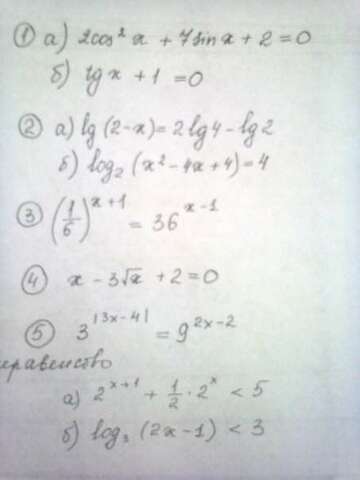 ① а) 2cos² x + 7sin x + 2 = 0
б) tg x + 1 = 0
② а) lg (2-x) = 2lg4 - lg2
б) log₂ (x² - 4x + 4) = 4
③ (1/6)^(x+1) = 36^(x-1)
④ x - 3√x + 2 = 0
⑤ 3^|3x-4| = 9^(2x-2)
еравенство
а) 2^(x+1) + 1/2 · 2^x < 5
б) log₃ (2x-1) < 3